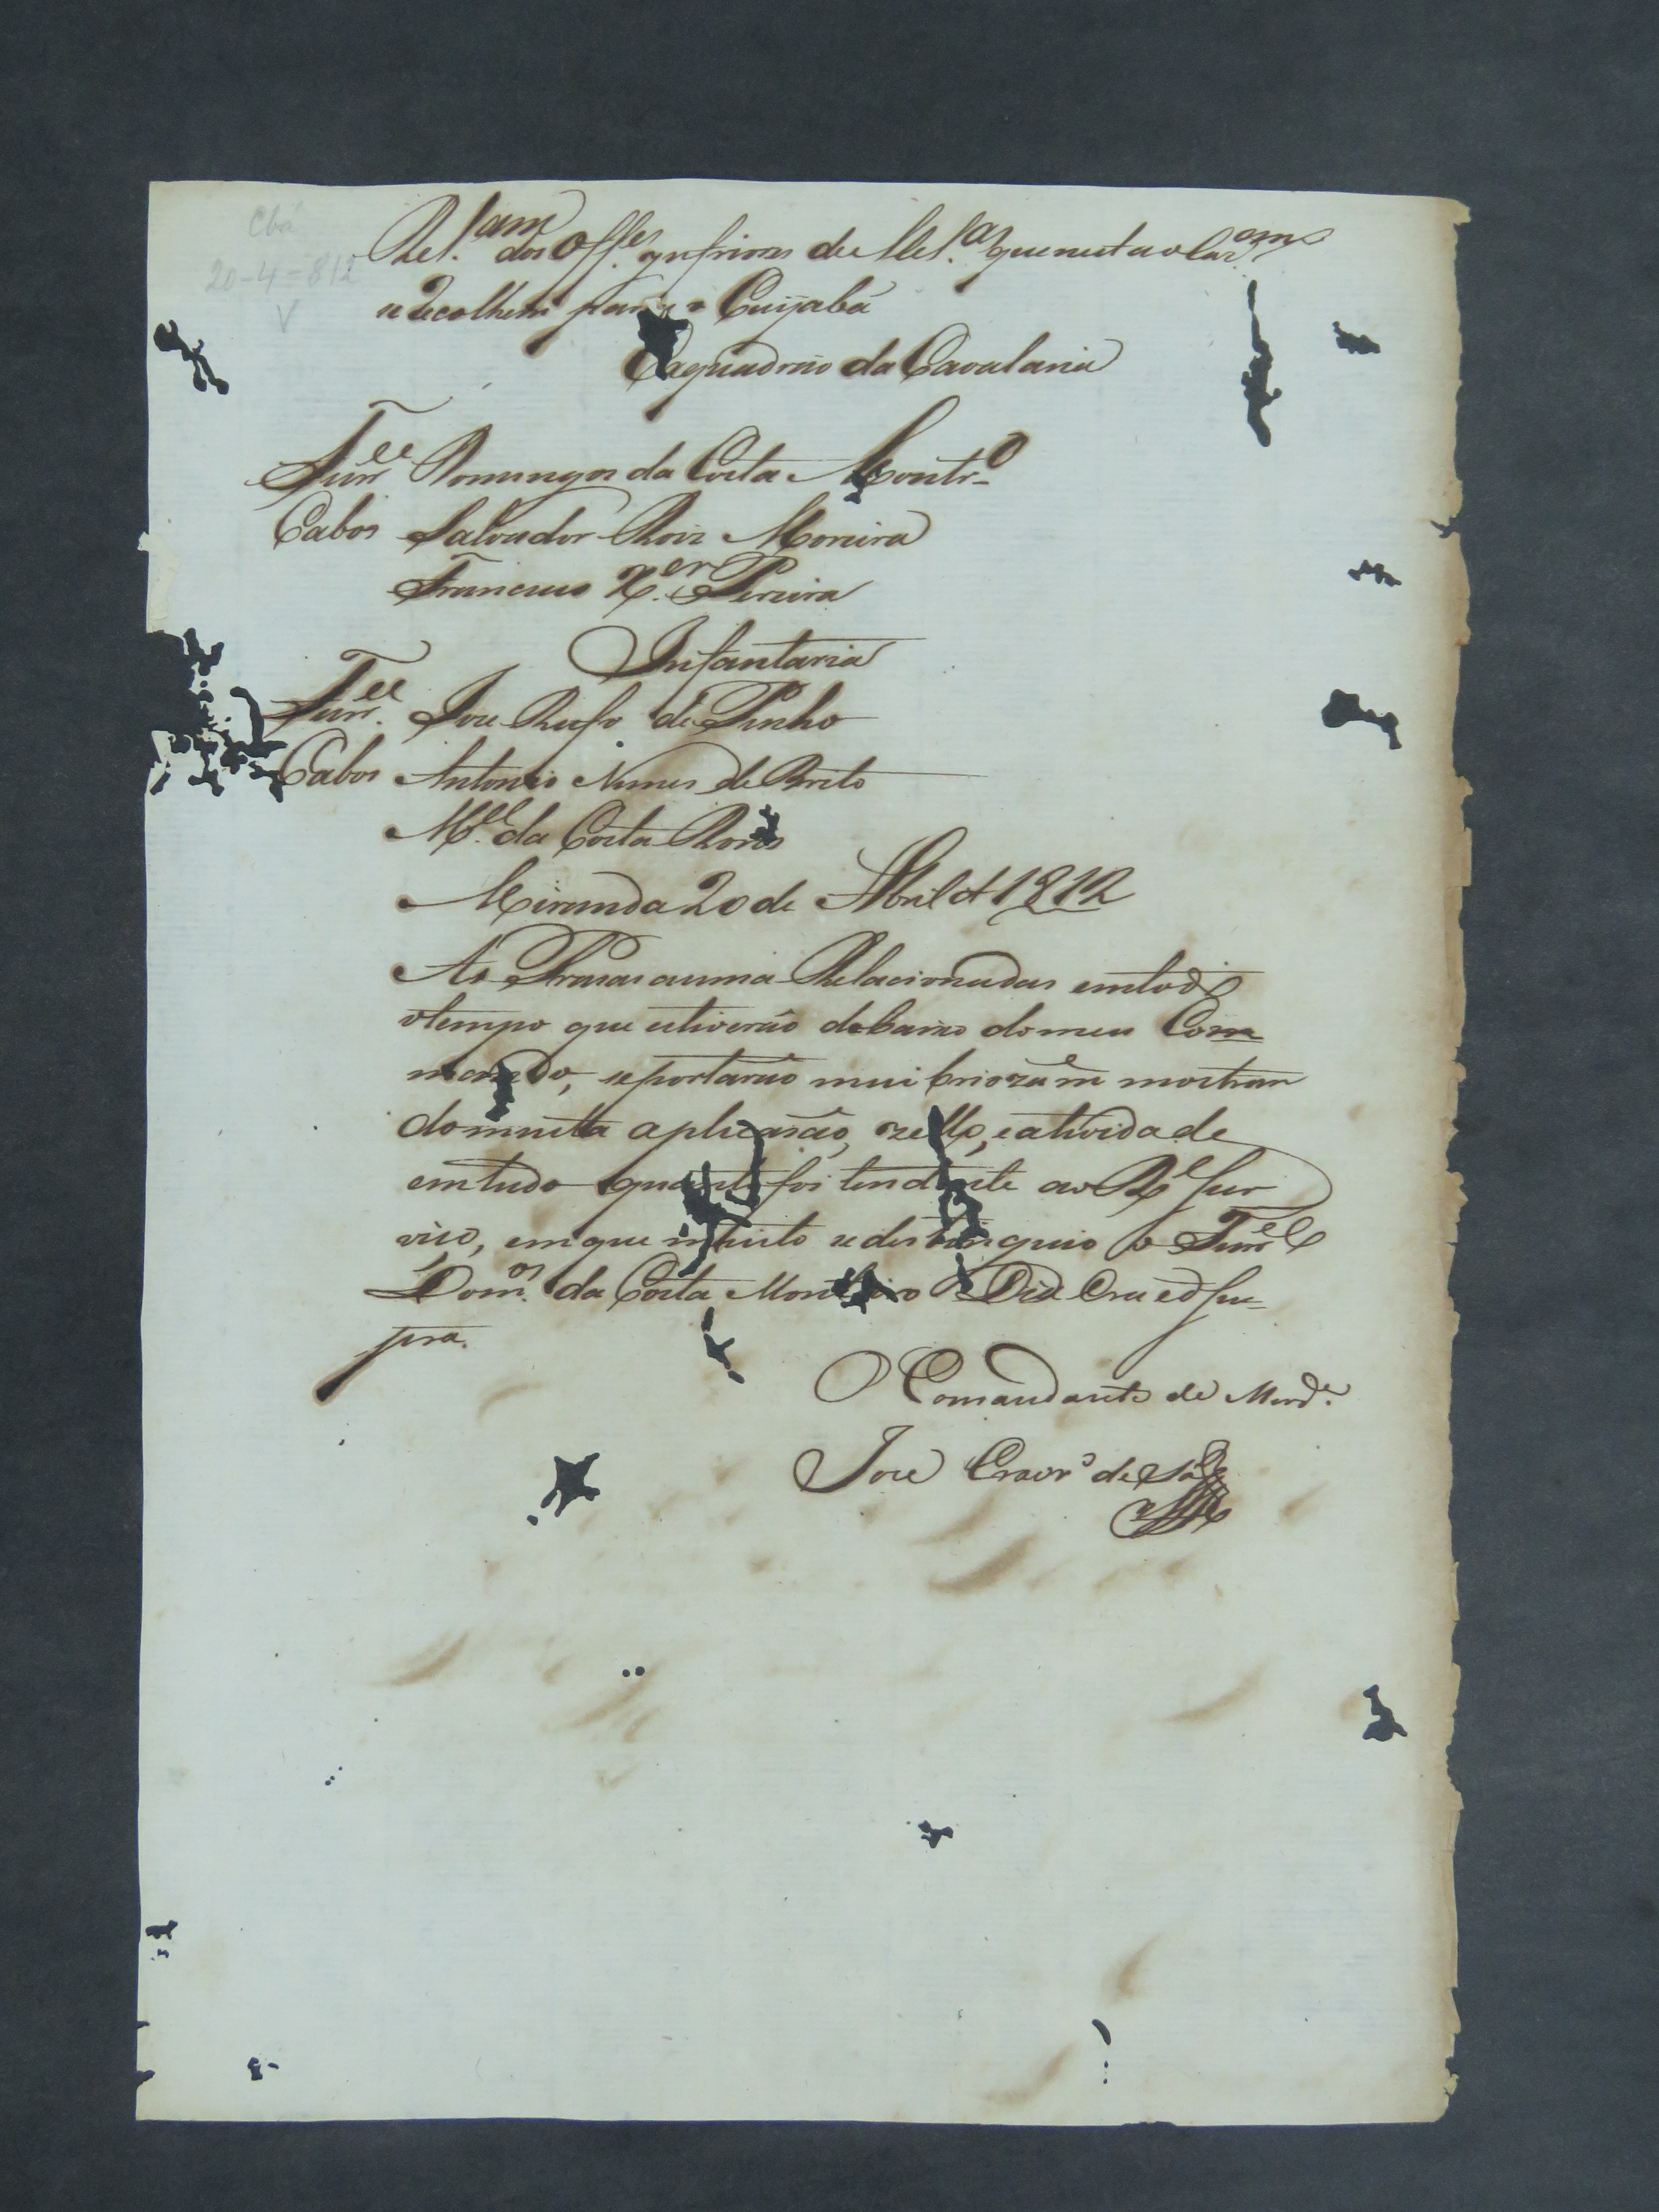 Cbá
20-4-812
V
Rel.am dos Off.es inferiores de Mel.a que nesta
se recolhem para o Cuyabá
Esquadrão da Cavalaria
Furr.el Domingos da Costa Montr.o
Cabos Salvador Roiz Moreira
Francisco X.er Pereira
Infantaria
Furr.el Joze Rufo de Pinho
Cabos Antonio Nunes de Brito
M.el da Costa Roris
Miranda 20 de Abril d 1812
As Prasas asima Relacionadas em todo
o tempo que estiverão debaixo do meu Com
mando, se portarão mui briozam.e mostran
do muita aplicasão, zello, e atividade
em tudo quanto foi tendente ao R.l Ser
viso, em que muito se destinguio o Furr.el
Dom.os da Costa Monteiro Dia Era ed Su-
pra.
O Comandante de Mird.a
Joze Craivr.o de Sá